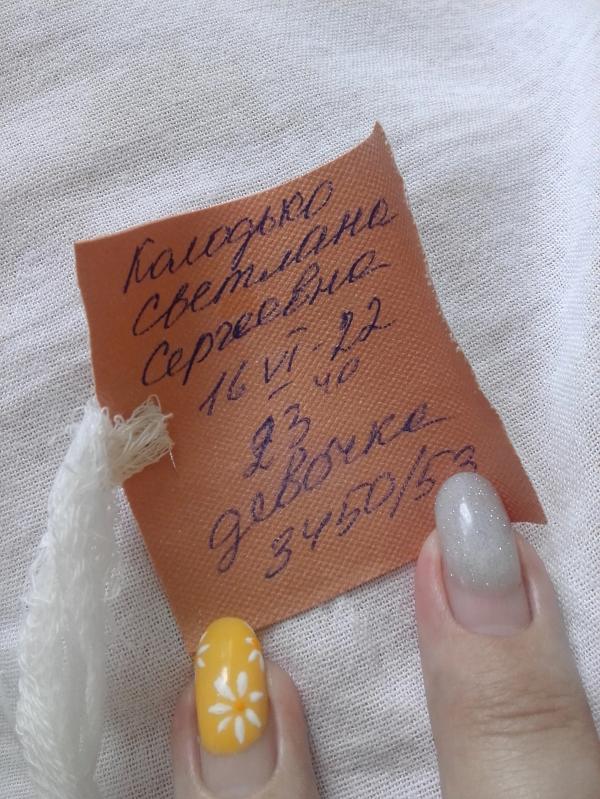 Колодько
Светлана
Сергеевна
16 VI-22
23 40
девочка
3450/53